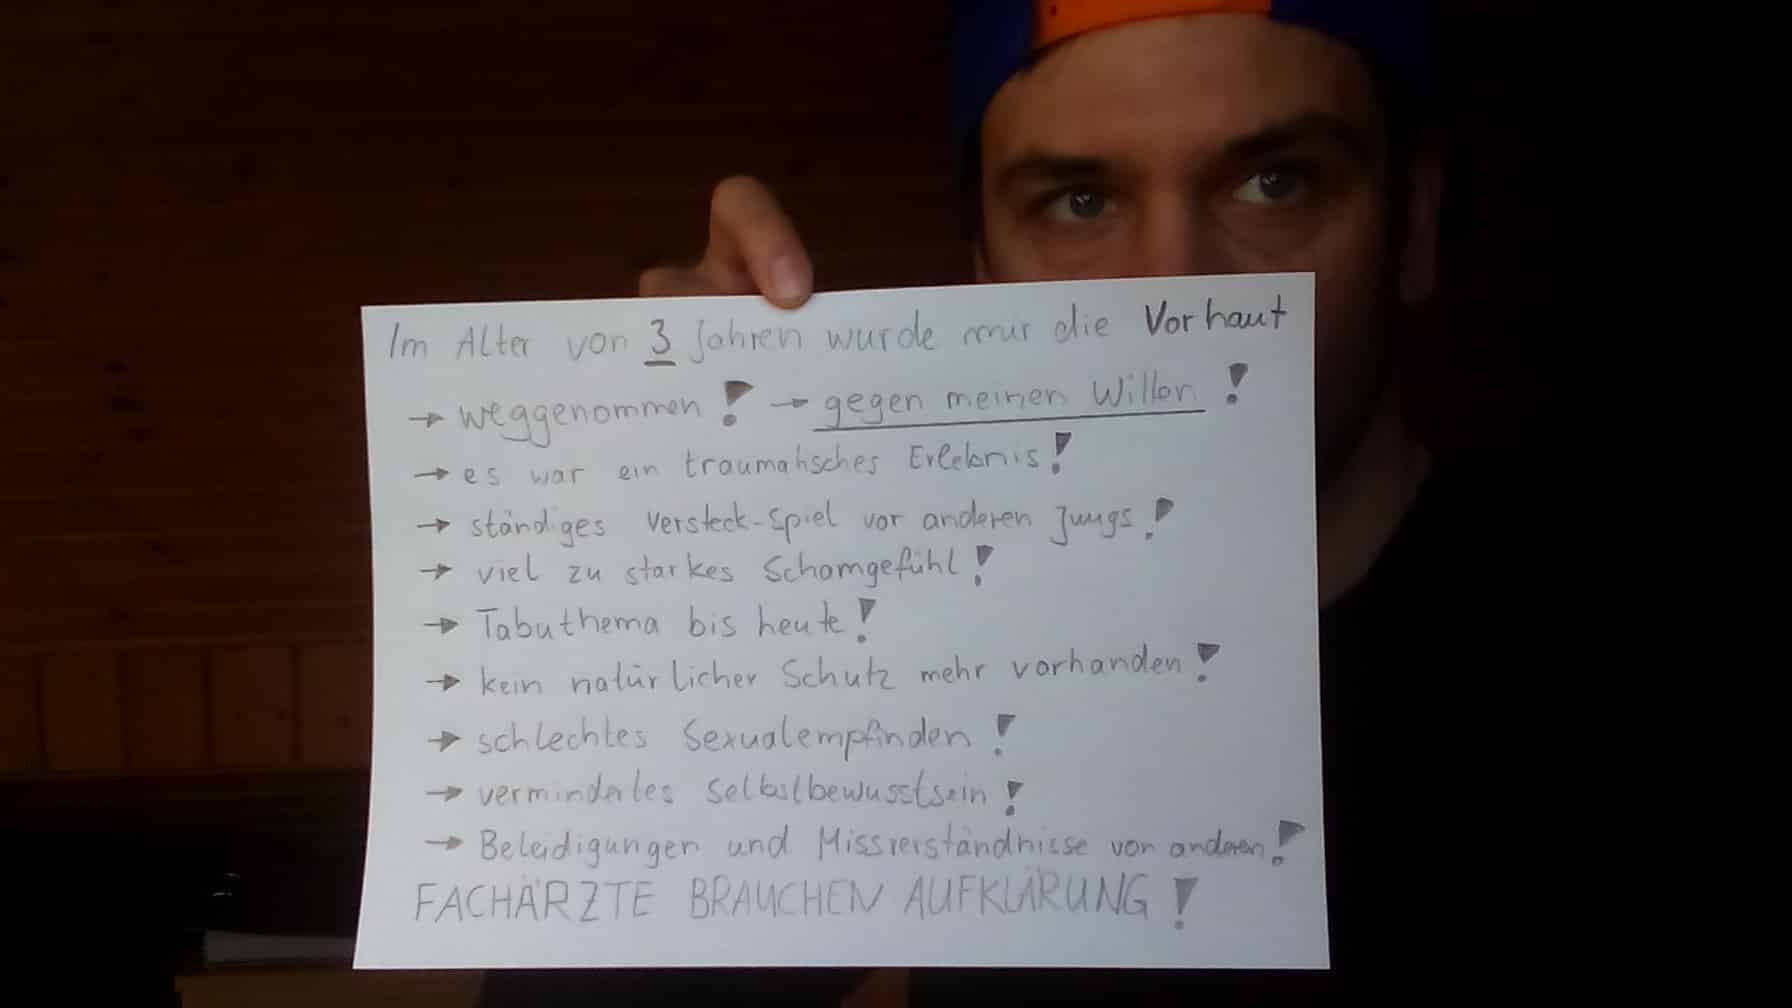 Im Alter von 3 Jahren wurde mir die Vorhaut
→ weggenommen! → gegen meinen Willen!
→ es war ein traumatisches Erlebnis!
→ ständiges Versteck-Spiel vor anderen Jungs!
→ viel zu starkes Schamgefühl!
→ Tabuthema bis heute!
→ kein natürlicher Schutz mehr vorhanden!
→ schlechtes Sexualempfinden!
→ vermindertes Selbstbewusstsein!
→ Beleidigungen und Missverständnisse von anderen!
FACHÄRZTE BRAUCHEN AUFKLÄRUNG!